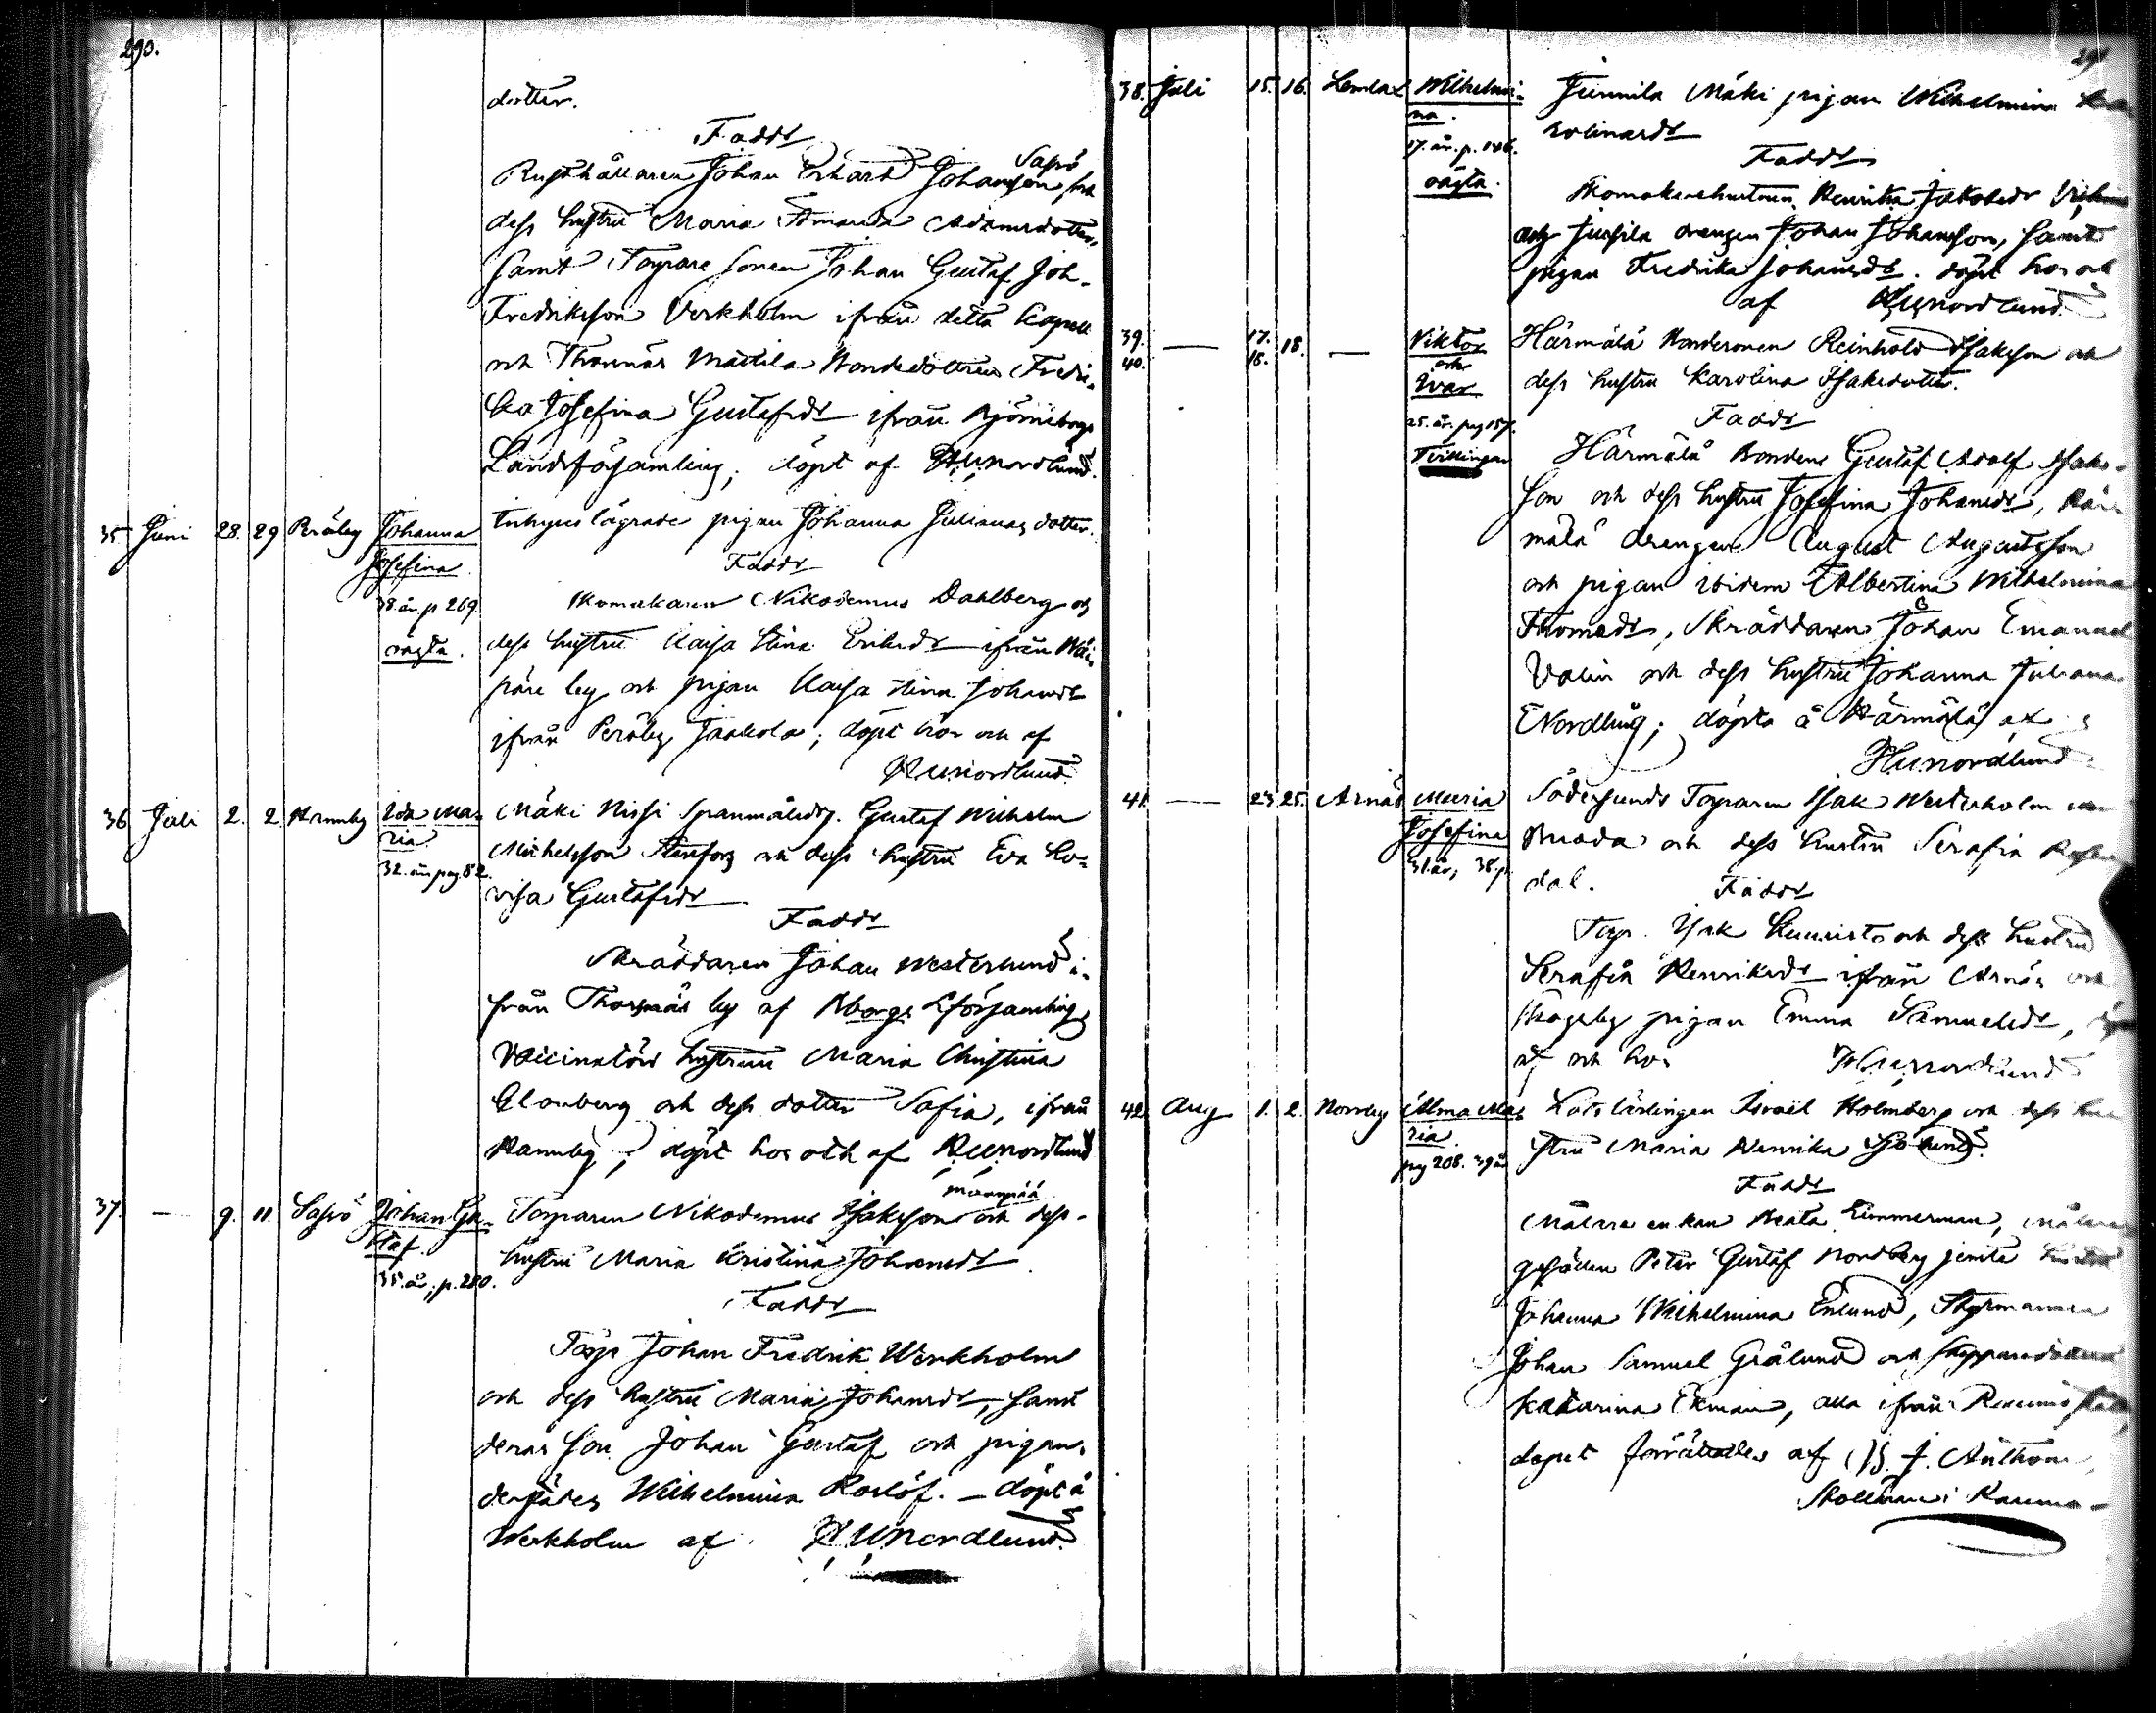 290.
dotter.
Faddr
Rusthållaren Johan Erhard Johansson Sassö och
dess hustru Maria Amanda Adamsdotter,
samt Torpare sonen Johan Gustaf Joh.
Fredriksson Verkholm ifrån detta Capell
och Thornäs Mattila Bondedottren Fredri-
ka Josefina Gustafsdr ifrån Björneborgs
Landsförsamling; döpt af HUNordlund.
35 Juni 28. 29 Peräby Johanna
Josefina
38. år. p 269.
oägta.
pigan Johanna Julianas dotter.
Faddr
Skomakaren Nikodemus Dahlberg och
dess hustru Kaisa Stina Eriksdr ifrån
by och pigan Kaisa Stina Johansdr
ifrån Peräby Jaakola; döpt hos och af
HUNordlund.
36 Juli 2. 2 Hamnby Ida Ma-
ria
32. år pag. 82.
Mäki Nissi Gustaf Wilhelm
Michelsson och dess hustru Eva Lo-
visa Gustafsdr
Faddr
Skräddaren Johan Westerlund i-
från Thornäs by af Bborgs Lförsamling,
Vaccinatörs hustrun Maria Christina
Blomberg och dess dotter Sofia, ifrån
Hamnby; döpt hos och af HUNordlund
37. — 9. 11. Sassö Johan Gu-
staf.
35. år; p. 280.
Torparen Nikodemus Isaksson och dess
hustru Maria Kristina Johansdr
Faddr
Torp Johan Fredrik Werkholm
och dess hustru Maria Johansdr, samt
deras son Johan Gustaf och pigan
Wilhelmina Roslöf. — döpt å
Werkholm af HUNordlund.
38. Juli 15. 16. Lemlax Wilhelmi-
na.
17. år. p. 146.
oägta.
Junnila Mäki pigan Wilhelmina
Faddr
Henrika Jakobsdr
Jussila drengen Johan Johansson, samt
pigan Fredrika Johansdr. döpt hos och
af HUNordlund.
39. — 17. 18. — Viktor
40. 18. och
Ivar
25. år. pag 157.
Tvillingar
Härmälä Bondesonen Reinhold Isaksson och
dess hustru Karolina Isaksdotter.
Faddr
Härmälä Bonden Gustaf Adolf Isaks-
son och dess hustru Josefina Johansdr, Här-
mälä drengen August Augustsson
och pigan ibidem Albertina Wilhelmina
Thomasdr, Skräddaren Johan Emanuel
Valin och dess hustru Johanna Juliana
Nordling; döpta å Härmälä af
HUNordlund
41. — 23. 25. Arnäs Maria
Josefina
31. år, 38. p.
Södersunds Torparen Isak Westerholm
och dess hustru Serafia
dal.
Faddr
Torp. Isak Kuusisto och dess hustru
Serafia Henriksdr ifrån Arnäs och
pigan Emma Samuelsdr,
af och hos HUNordlund
42. Aug 1. 2. Norrby Alma Ma-
ria.
pag 208. 39 år
Lotslärlingen Israel Holmberg och dess hu-
stru Maria Henrika Sjölund.
Faddr
Målare enkan Beata Timmerman, målare
gesällen Peter Gustaf Nordberg jemte hustru
Johanna Wilhelmina Enlund, Styrmannen
Johan Samuel Grälund och skepparedottren
Katarina Ekman, alla ifrån Raumo stad,
dopet förrättades af G. J. Anthoni,
i Raumo —